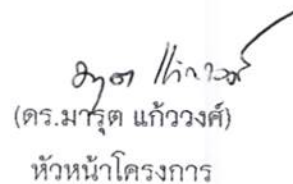 (ดร.มารุต แก้ววงศ์)
หัวหน้าโครงการ